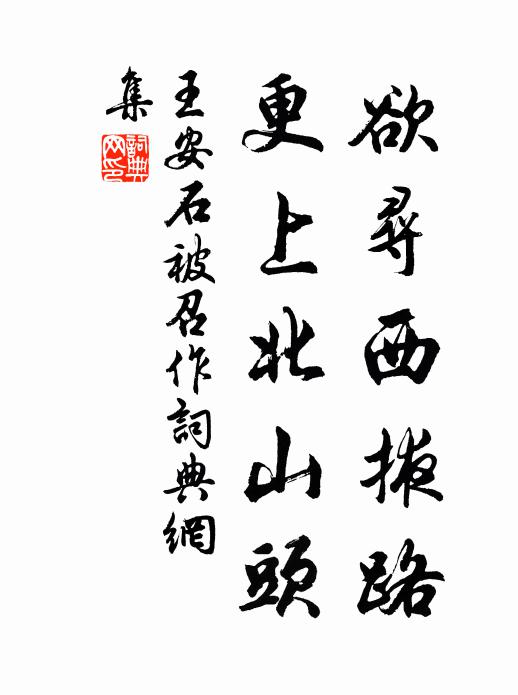 欲尋西掖路
更上北山頭
王安石被召作詞典網
集
詞典
网印